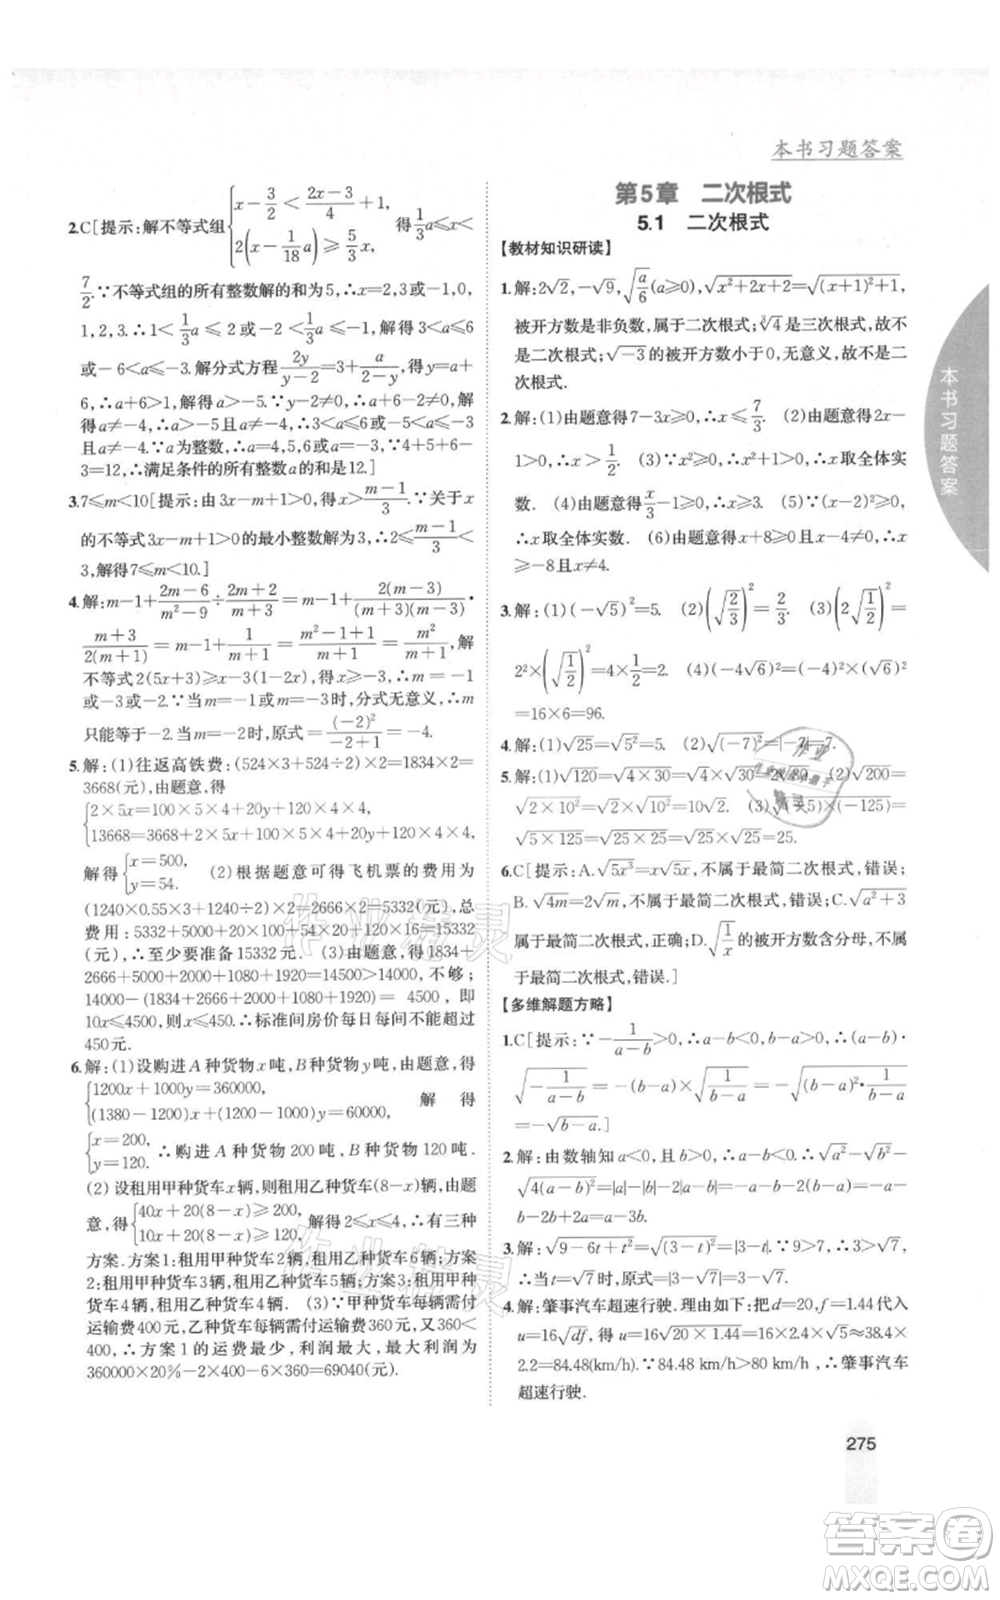 本书习题答案
2.C[提示:解不等式组{x-3/2<(2x-3)/4+1, 2(x-1/18 a)≥5/3 x, 得1/3 a≤x<
7/2.∵不等式组的所有整数解的和为5,∴x=2,3或-1,0,
1,2,3.∴1<1/3 a≤2或-2<1/3 a≤-1.∴3<a≤6或
-6<a≤-3.解分式方程2y/(y-2)+a/(2-y)=1得y=a-2.
6,∴a+6>1,解得a>-5.∵
≠-4,∴a>-5且a≠-4.∵a为整数,
∴满足条件的所有整数a的和为11.]
3.7≤m<10[提示:由3x-m+1>0,得x>(m-1)/3.∵关于x
的不等式3x-m+1>0的最小整数解为3,∴2≤(m-1)/3<
3,解得7≤m<10.]
4.解:m-1+(2m-6)/(m²-9)÷(2m+2)/(m+3)=m-1+2(m-3)/((m+3)(m-3))·
(m+3)/(2(m+1))=m-1+1/(m+1)=(m²-1+1)/(m+1)=m²/(m+1),解
不等式2(5x+3)≥x-3(1-2x),得x≥-3.
∵m=-1或m=±3时,分式无意义,∴m
只能等于-2.当m=-2时,原式=(-2)²/(-2+1)=-4.
5.解:(1)往返高铁费:(524×3+524÷2)×2=1834×2=
3668(元),由题意,得
{2×5x+100×5×4+20y+120×4=
13668=3668+5x×2+20y+120×4,
解得{x=500, y=54. (2)根据题意可得飞机票的费用为
(1240×0.55×3+1240÷2)×2=2666×2=5332(元),总
费用:5332+5000+2000+1080+1920=15332
(元),∴至少要准备15332元. (3)由题意,得1834+
2666+5000+2000+1080+1920=14500>14000,不够;
14000-(1834+2666+2000+1080+1920)=4500,即
10x≤4500,则x≤450.∴标准间房价每日每间不能超过
450元.
6.解:(1)设购进A种货物x吨,B种货物y吨,由题意,得
{1200x+1000y=360000, (1380-1200)x+(1200-1000)y=60000, 解得
{x=200, y=120. ∴购进A种货物200吨,B种货物120吨.
(2)设租用甲种货车x辆,则租用乙种货车(8-x)辆,由题
意,得{40x+20(8-x)≥200, 10x+20(8-x)≥120, 解得2≤x≤4,∴有三种
方案.方案1:租用甲种货车2辆,租用乙种货车6辆;方案
2:租用甲种货车3辆,租用乙种货车5辆;方案3:租用甲种
货车4辆,租用乙种货车4辆. (3)∵甲种货车每辆需付
运输费400元,乙种货车每辆需付运输费360元,又360<
400,∴方案1的运费最少,利润最大,最大利润
360000×20%-2×400-6×360=69040(元).
第5章 二次根式
5.1 二次根式
【教材知识研读】
1.解:2√2,-√9,√(a/6)(a≥0),√(x²+2x+2)=√((x+1)²+1),
被开方数是非负数,属于二次根式;∛4是三次根式,故不
是二次根式;√-3的被开方数小于0,无意义,故不是二
次根式.
2.解:(1)由题意得7-3x≥0,∴x≤7/3. (2)由题意得2x-
1>0,∴x>1/2. (3)∵x²≥0,∴x²+1>0.∴x取全体实
数. (4)由题意得x/3≥0,∴x≥0. (5)∵(x-2)²≥0,
∴x取全体实数. (6)由题意得x+8≥0且x+4≠0,∴x
≥-8且x≠-4.
3.解:(1)(-√5)²=5. (2)(√(2/3))²=2/3. (3)(2√(1/2))²=
2²×(√(1/2))²=2. (4)(-4√6)²=(-4)²×(√6)²
=16×6=96.
4.解:(1)√25=√5²=5. (2)√(-7)²=|-7|=7.
5.解:(1)√120=√(4×30)=√4×√30=2√30. (2)√200=
√(2×10²)=√2×√10²=10√2. (3)√((-5)×(-125))=
√(5×125)=√(25×25)=√25×√25=25.
6.C[提示:A.√5x³=x√5x,不属于最简二次根式,错误;
B.√4m=2√m,不属于最简二次根式,错误;C.√(a²+3)
属于最简二次根式,正确;D.√(1/x)的被开方数含分母,不属
于最简二次根式,错误.]
【多维解题方略】
1.C[提示:∵-1/(a-b)>0,∴a-b<0,∴b-a>0,∴(a-b)·
√(-1/(a-b))=-(b-a)×√(1/(b-a))=-√((b-a)²×1/(b-a))=
-√(b-a).]
2.解:由数轴知a<0,b>0,∴a-b<0,∴√a²-√b²-
√(4(a-b)²)=|a|-|b|-2|a-b|=-a-b-2(b-a)=-a
-b-2b+2a=a-3b.
3.解:√(9-6t+t²)=√(3-t)²=|3-t|.∵9>7,∴√9>√7,
∴当t=√7时,原式=|3-√7|=3-√7.
4.解:肇事汽车超速行驶.理由如下:把d=20,f=1.44代入
u=16√df,得u=16√(20×1.44)=16√28.8≈38.4×
2.2=84.48(km/h).∵84.48 km/h>70 km/h,∴肇事汽车
超速行驶.
本书习题答案
275
作业精灵
作业精灵
答案圈
MXQE.COM